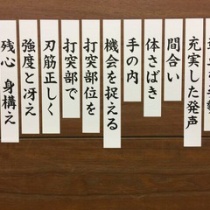 充実した発声
間合い
体さばき
手の内
機会を捉える
打突部位を
打突部で
刃筋正しく
強度と冴え
残心 身構え